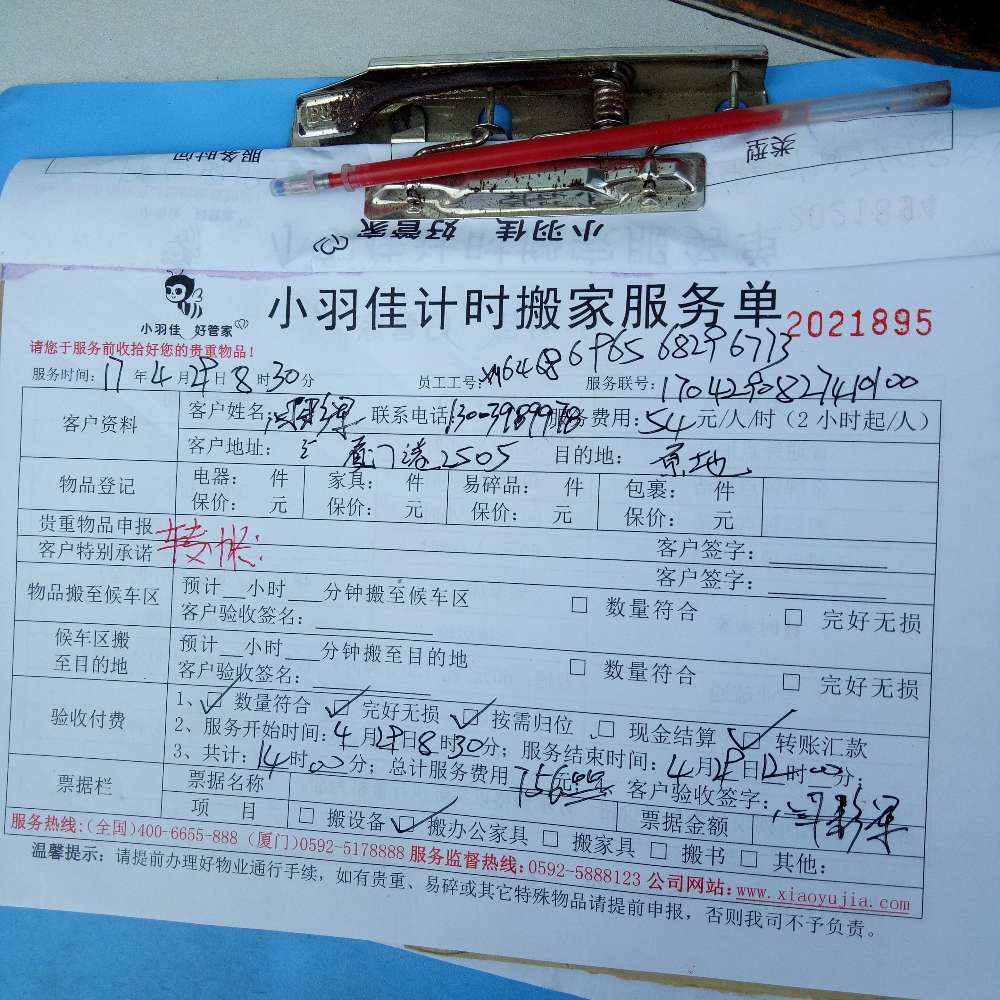 服务时间 类型
小羽佳 好管家
2021894
小羽佳 好管家
小羽佳计时搬家服务单
2021895
请您于服务前收拾好您的贵重物品！
服务时间：17年4月29日8时30分 员工工号： 服务联号：
客户资料 客户姓名： 联系电话 服务费用：54元/人/时（2小时起/人）
客户地址： 厦门湾2505 目的地：原地
物品登记 电器： 件 家具： 件 易碎品： 件 包裹： 件
保价： 元 保价： 元 保价： 元 保价： 元
贵重物品申报 客户签字：
客户特别承诺 转帐： 客户签字：
物品搬至候车区 预计__小时___分钟搬至候车区 □ 数量符合 □ 完好无损
客户验收签名：
候车区搬至目的地 预计__小时___分钟搬至目的地 □ 数量符合 □ 完好无损
客户验收签名：
验收付费 1、☑ 数量符合 ☑ 完好无损 ☑ 按需归位 □ 现金结算 ☑ 转账汇款
2、服务开始时间：4月29日8时30分；服务结束时间：4月29日12时00分；
3、共计：14时00分；总计服务费用756元 客户验收签字：
票据栏 票据名称 票据金额
项 目 □ 搬设备 ☑ 搬办公家具 □ 搬家具 □ 搬书 □ 其他：
服务热线：(全国)400-6655-888 (厦门)0592-5178888 服务监督热线：0592-5888123 公司网站：www.xiaoyujia.com
温馨提示：请提前办理好物业通行手续，如有贵重、易碎或其它特殊物品请提前申报，否则我司不予负责。